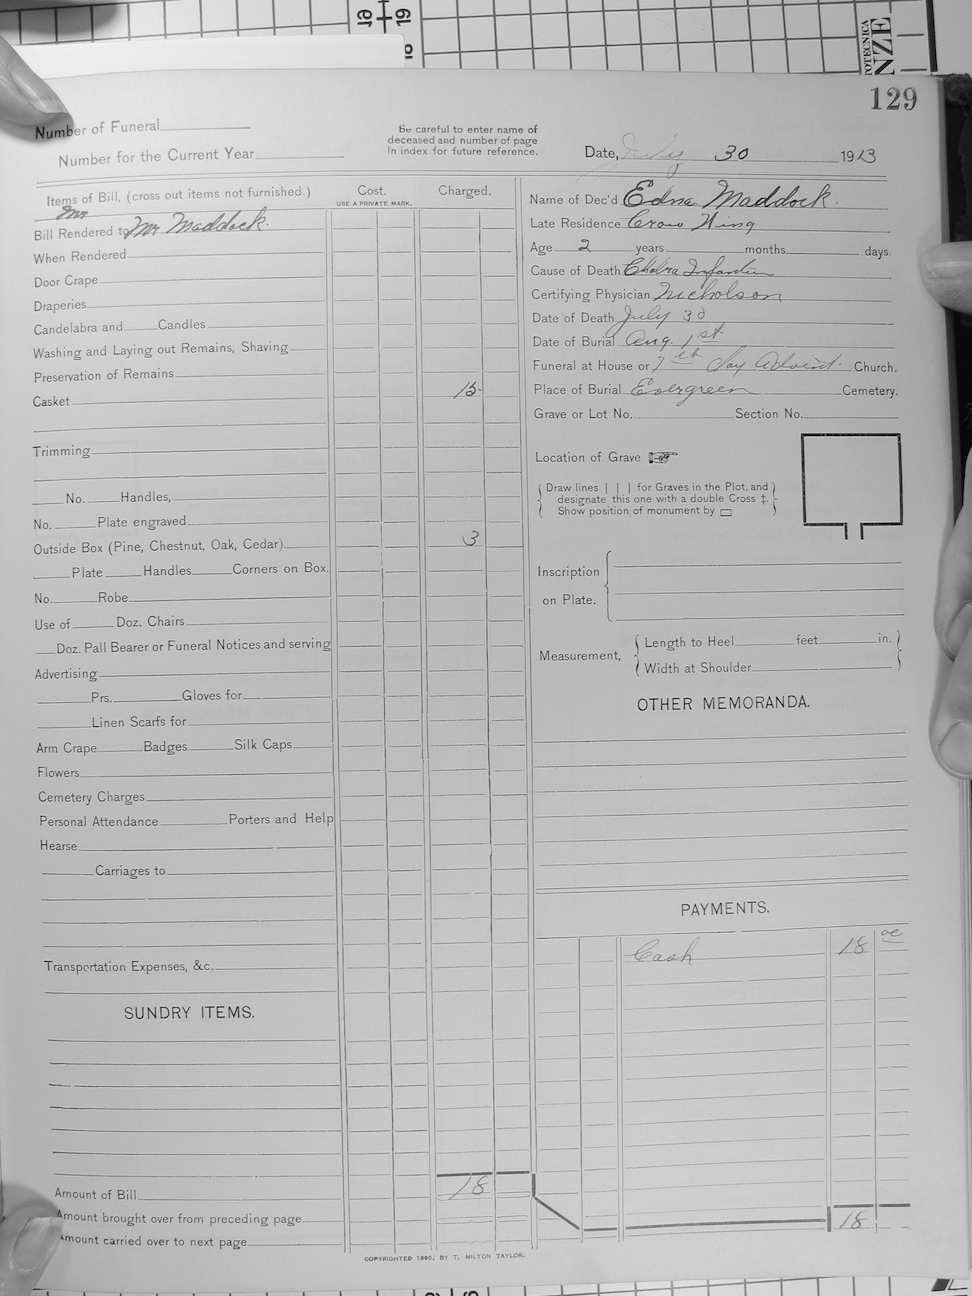 129
Number of Funeral
Number for the Current Year
Be careful to enter name of
deceased and number of page
in index for future reference.
Date, July 30 1913
Items of Bill, (cross out items not furnished.)
Cost.
USE A PRIVATE MARK.
Charged.
Mr
Bill Rendered to Mr Maddock.
When Rendered
Door Crape
Draperies
Candelabra and Candles
Washing and Laying out Remains, Shaving
Preservation of Remains
Casket 15-
Trimming
No. Handles,
No. Plate engraved
Outside Box (Pine, Chestnut, Oak, Cedar) 3
Plate Handles Corners on Box.
No. Robe
Use of Doz. Chairs
Doz. Pall Bearer or Funeral Notices and serving
Advertising
Prs. Gloves for
Linen Scarfs for
Arm Crape Badges Silk Caps
Flowers
Cemetery Charges
Personal Attendance Porters and Help
Hearse
Carriages to
Transportation Expenses, &c.
SUNDRY ITEMS.
Amount of Bill 18
Amount brought over from preceding page
Amount carried over to next page
Name of Dec'd Edna Maddock.
Late Residence Crow Wing
Age 2 years months days
Cause of Death Cholra Infantin
Certifying Physician Nicholson
Date of Death July 30
Date of Burial Aug 1st
Funeral at House or 7th Day Advint. Church.
Place of Burial Evergreen Cemetery.
Grave or Lot No. Section No.
Location of Grave
Draw lines | | | for Graves in the Plot, and
designate this one with a double Cross ‡.
Show position of monument by ▭
Inscription
on Plate.
Measurement,
Length to Heel feet in.
Width at Shoulder
OTHER MEMORANDA.
PAYMENTS.
Cash 18 oo
18
COPYRIGHTED 1890, BY T. MILTON TAYLOR.